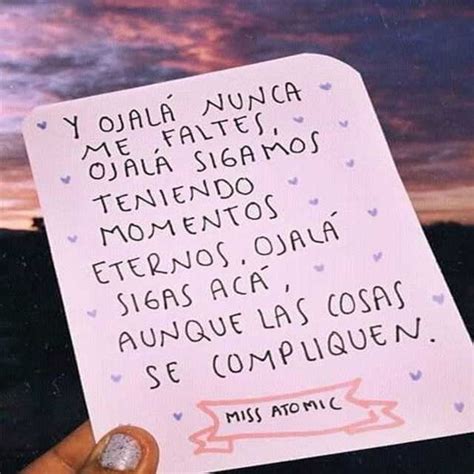 Y OJALÁ NUNCA
ME FALTES,
OJALÁ SIGAMOS
TENIENDO
MOMENTOS
ETERNOS, OJALÁ
SIGAS ACÁ,
AUNQUE LAS COSAS
SE COMPLIQUEN.
MISS ATOMIC